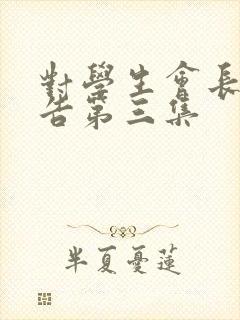 對學生會長
告第三集
半夏憂蓮